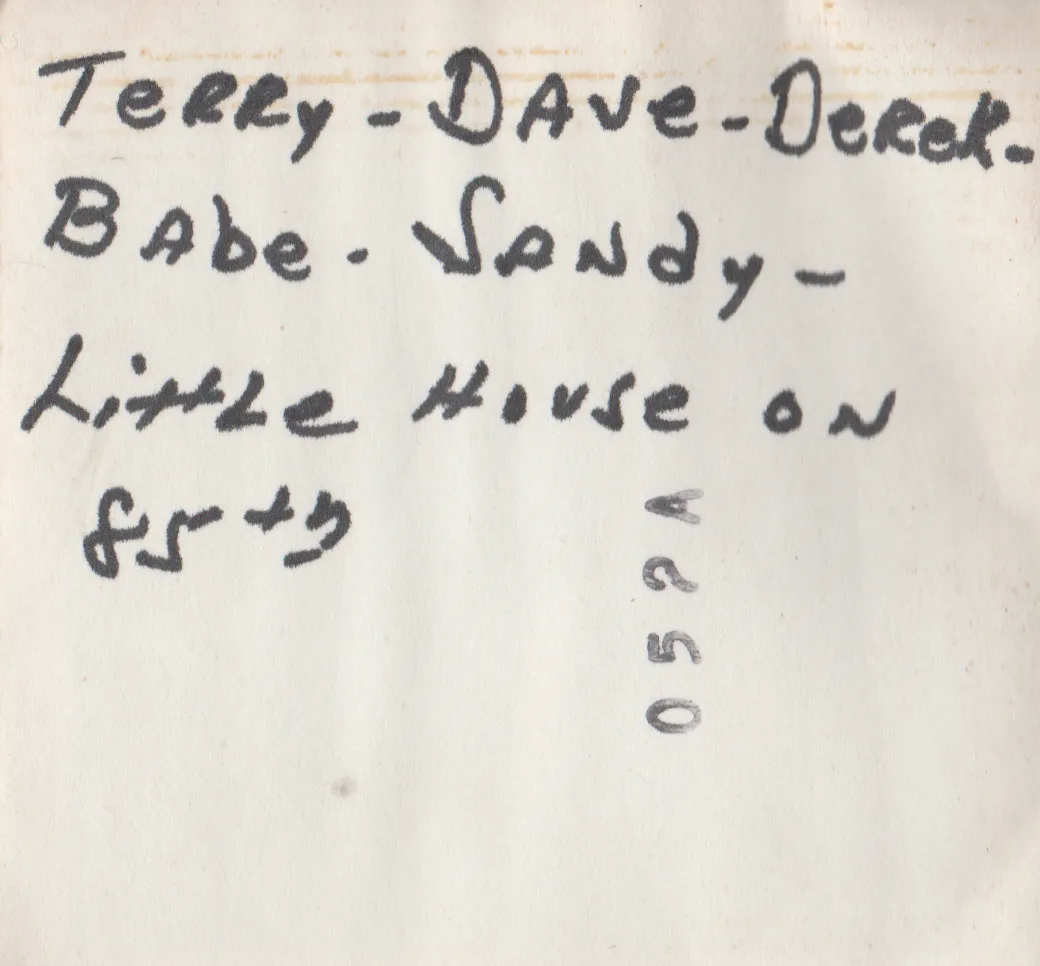 TeRRy - DAve - DeRek -
BAbe - SANdy -
LittLe House oN
85th
052A